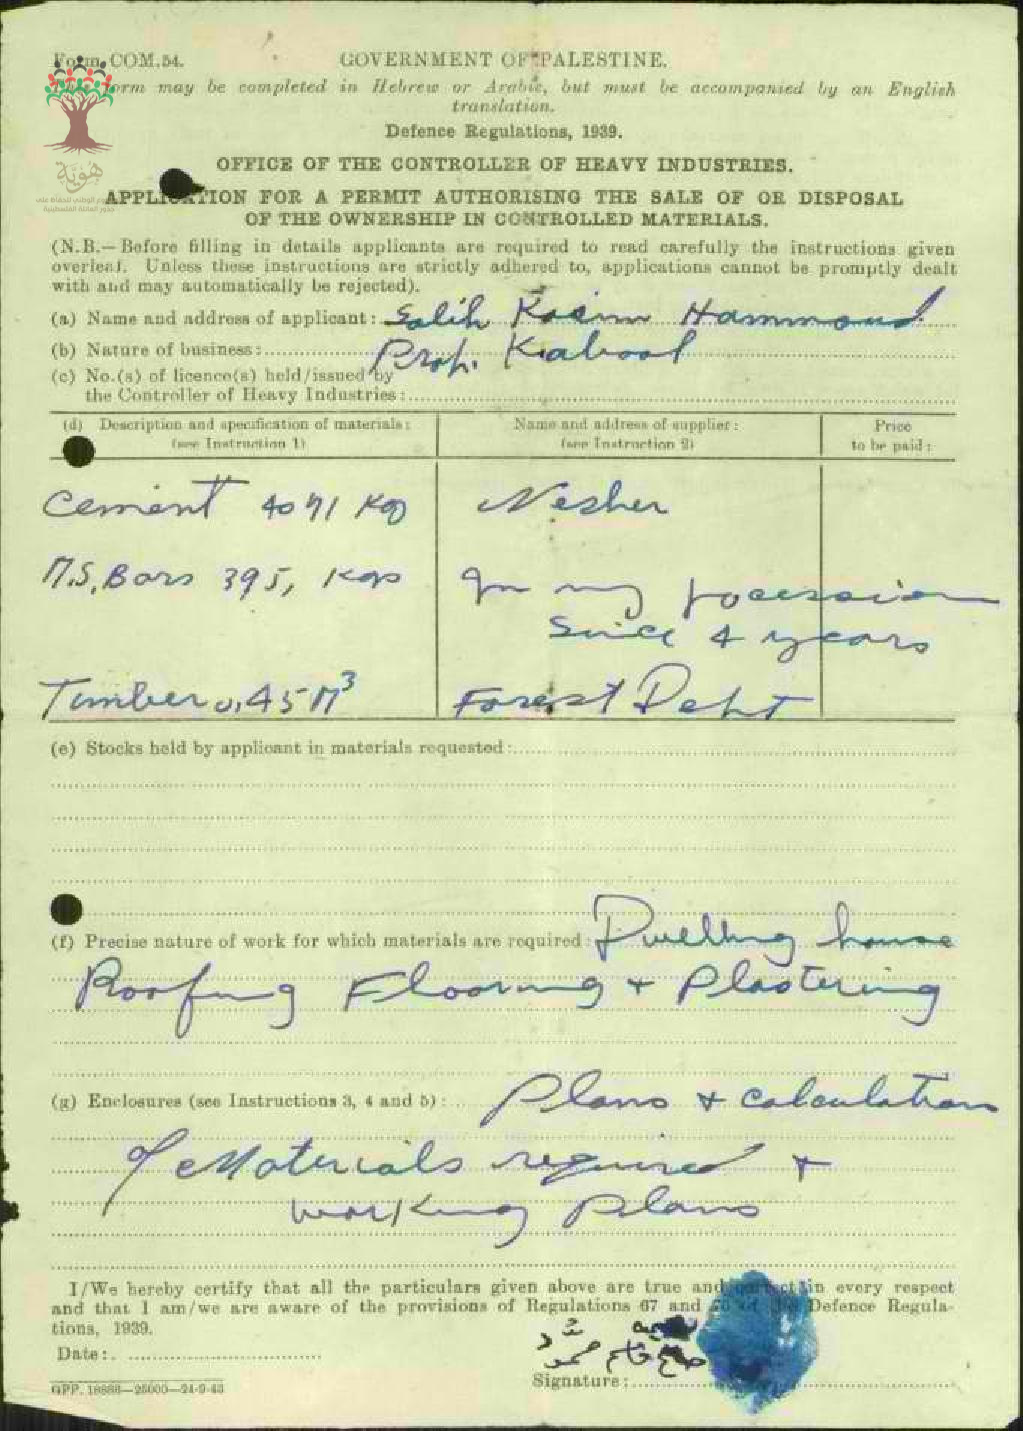 Form COM.54.
GOVERNMENT OF PALESTINE.
form may be completed in Hebrew or Arabic, but must be accompanied by an English
translation.
Defence Regulations, 1939.
OFFICE OF THE CONTROLLER OF HEAVY INDUSTRIES.
APPLICATION FOR A PERMIT AUTHORISING THE SALE OF OR DISPOSAL
OF THE OWNERSHIP IN CONTROLLED MATERIALS.
هوية
(N.B.—Before filling in details applicants are required to read carefully the instructions given
overleaf. Unless these instructions are strictly adhered to, applications cannot be promptly dealt
with and may automatically be rejected).
(a) Name and address of applicant: Salih Kasim Hammoud
(b) Nature of business: Prop. Kabool
(c) No.(s) of licence(s) held/issued by
the Controller of Heavy Industries:
(d) Description and specification of materials: Name and address of supplier: Price
(see Instruction 1) (see Instruction 2) to be paid:
Cement 4071 Kgs Nesher
M.S. Bars 395, Kgs In my pocession
Since 4 years
Timber 0,45 M³ Forest Dept
(e) Stocks held by applicant in materials requested:
(f) Precise nature of work for which materials are required: Dwelling house
Roofing Flooring + Plastering
(g) Enclosures (see Instructions 3, 4 and 5): Plans + calculations
of Materials required +
working plans
I/We hereby certify that all the particulars given above are true and correct in every respect
and that I am/we are aware of the provisions of Regulations 67 and of the Defence Regula-
tions, 1939.
Date:
صالح قاسم حمود
Signature:
GPP. 18888—25000—24-9-43